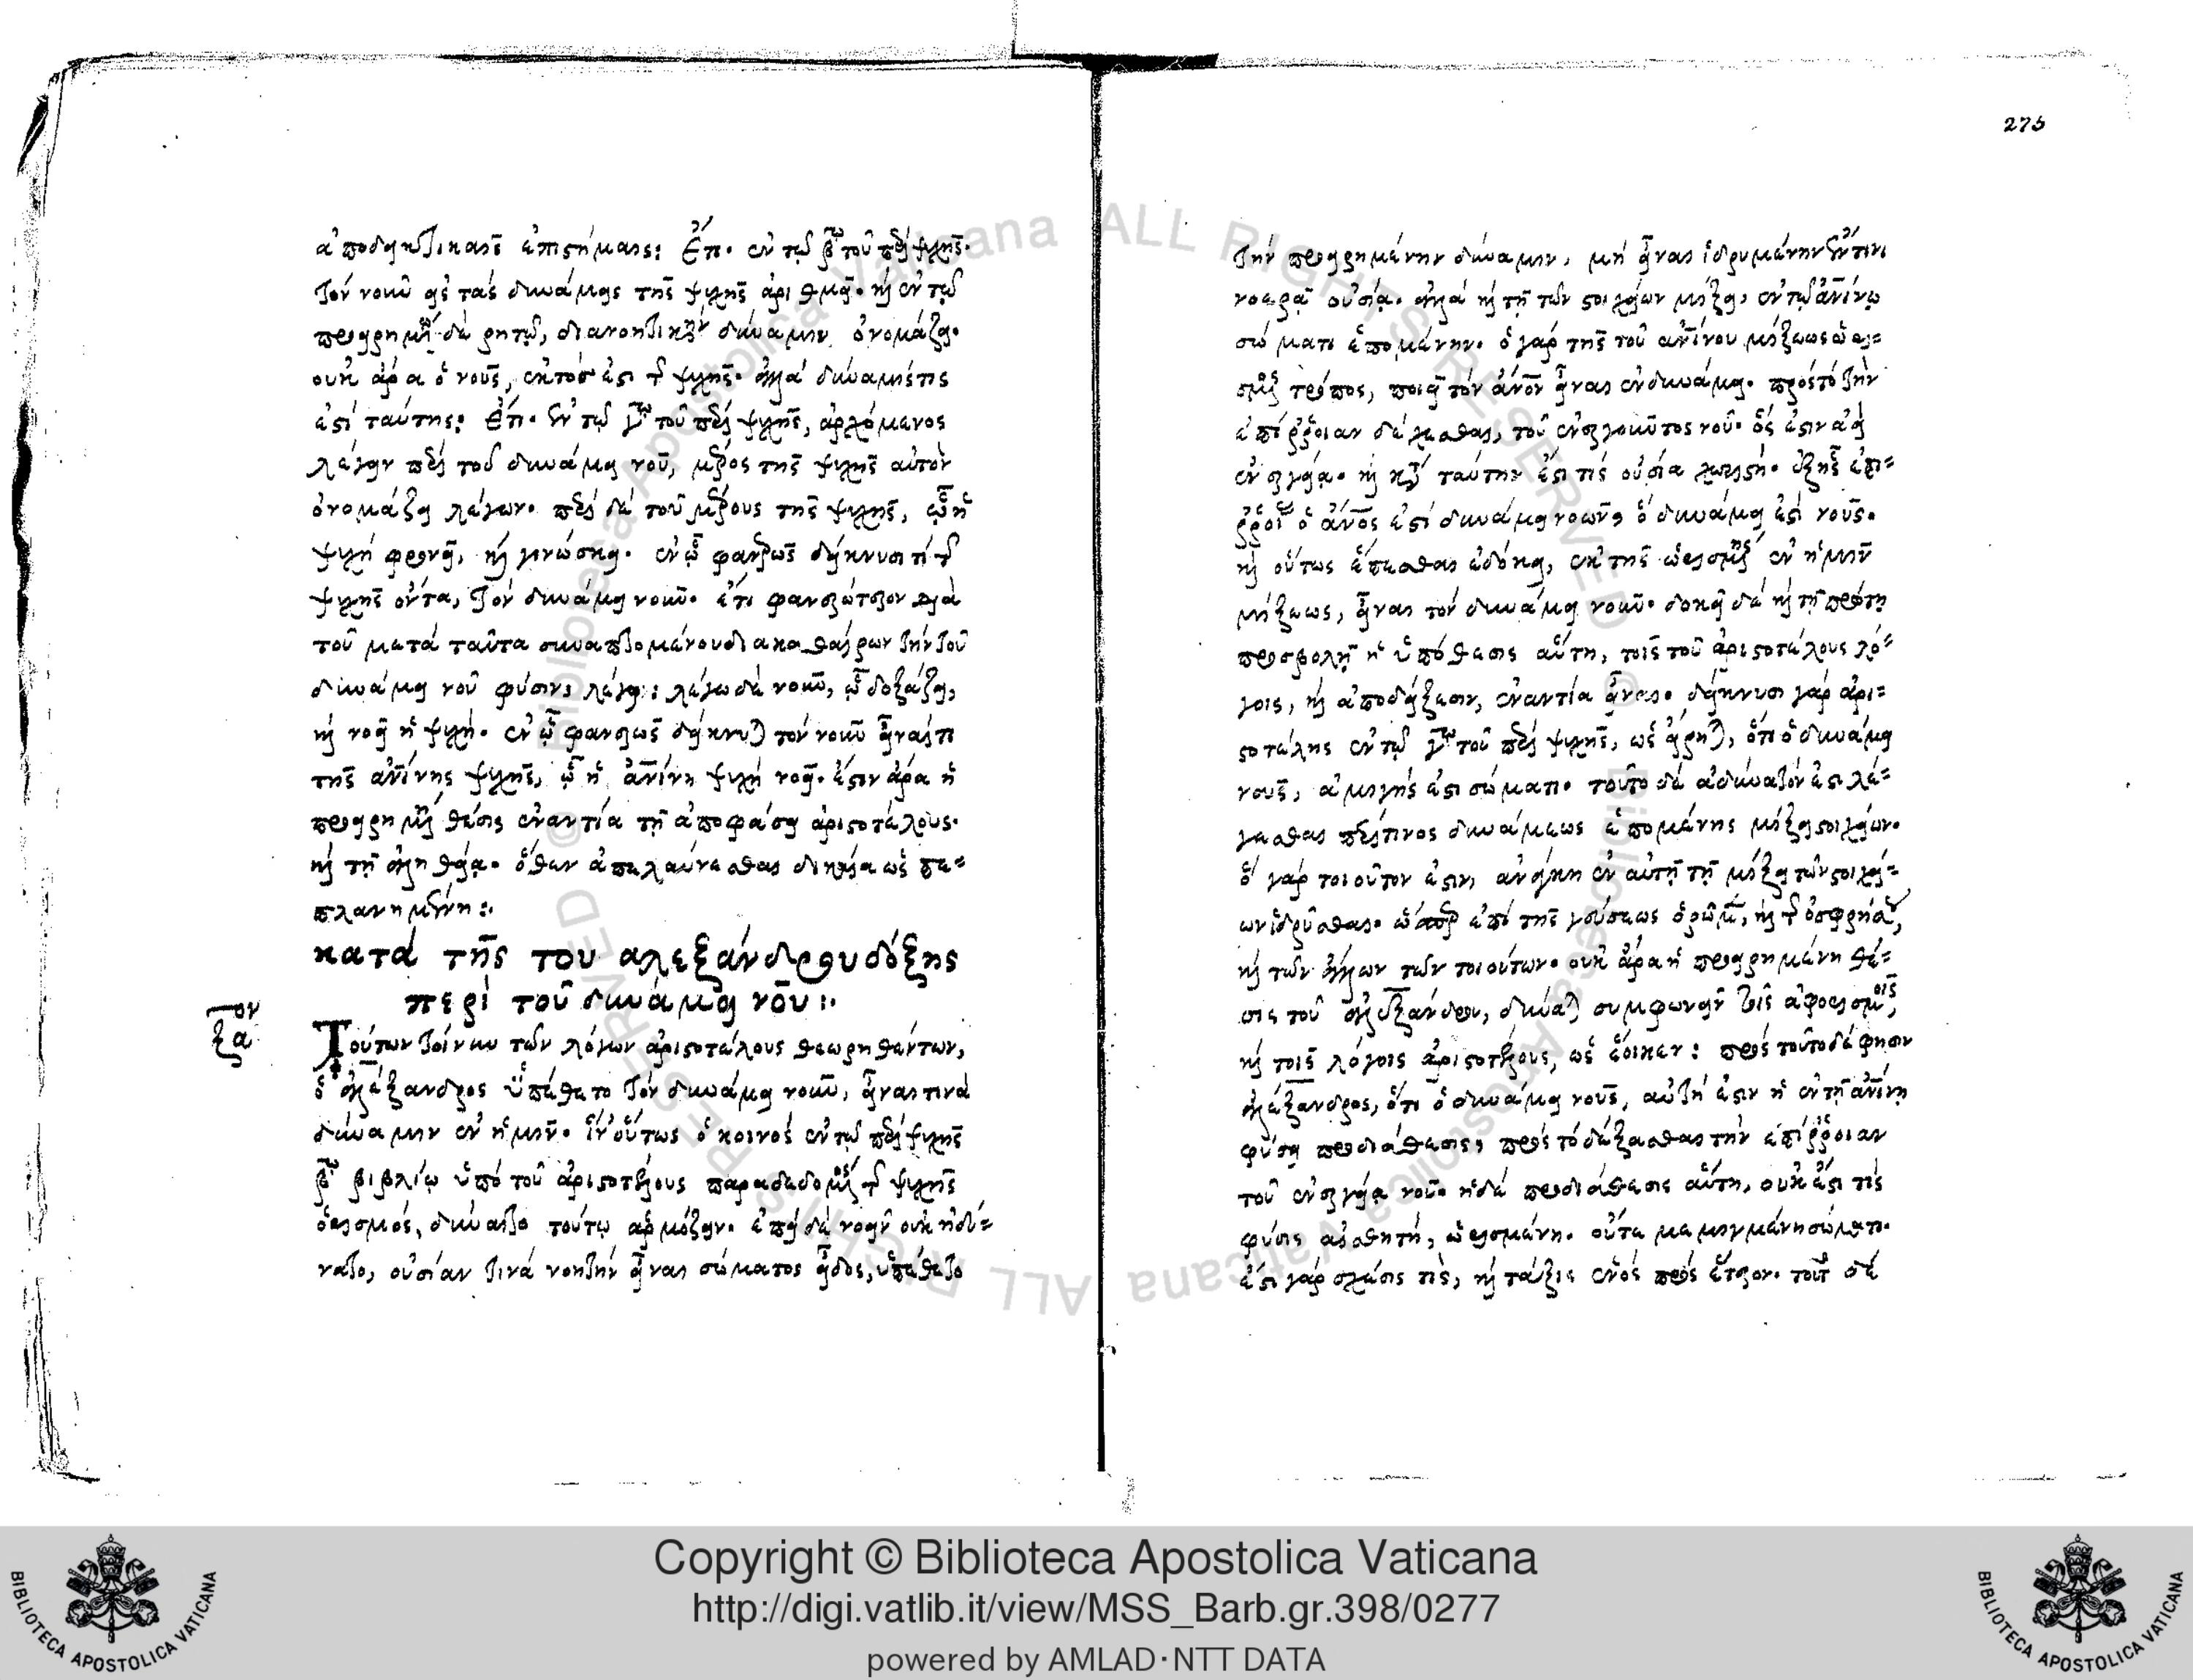 ἀποδεικτικαῖς ἐπιστήμαις: Ἔτι. ἐν τῷ βῳ τοῦ περὶ ψυχῆς.
τὸν νοῦν εἰς τὰς δυνάμεις τῆς ψυχῆς ἀριθμεῖ. καὶ ἐν τῷ
προειρημένῳ δὲ ῥητῷ, διανοητικὴν δύναμιν ὀνομάζει.
οὐκ ἄρα ὁ νοῦς, ἐκτός ἐστι τῆς ψυχῆς. ἀλλὰ δύναμίς τις
ἐστὶ ταύτης: Ἔτι. ἐν τῷ γῳ τοῦ περὶ ψυχῆς, ἀρχόμενος
λέγειν περὶ τοῦ δυνάμει νοῦ, μέρος τῆς ψυχῆς αὐτὸν
ὀνομάζει λέγων. περὶ δὲ τοῦ μέρους τῆς ψυχῆς, ᾧ ἡ
ψυχὴ φρονεῖ, καὶ γινώσκει. ἐν ᾧ φανερῶς δείκνυσι τὶ τῆς
ψυχῆς ὄντα, τὸν δυνάμει νοῦν. ἔτι φανερώτερον διὰ
τοῦ μετὰ ταῦτα συναπτομένου διακαθαίρων τὴν τοῦ
δυνάμει νοῦ φύσιν, λέγει: λέγω δὲ νοῦν, ᾧ δοξάζει,
καὶ νοεῖ ἡ ψυχή. ἐν ᾧ φανερῶς δείκνυται τὸν νοῦν εἶναί τι
τῆς ἀνίνης ψυχῆς, ᾧ ἡ ἀνίνη ψυχὴ νοεῖ. ἔστιν ἄρα ἡ
προειρημένη θέσις ἐναντία τῇ ἀποφάσει ἀριστοτέλους.
καὶ τῇ ἀληθείᾳ. ὅθεν ἀπελαύνεσθαι δικαία ὡς πε=
πλανημένη:.
κατὰ τῆς τοῦ ἀλεξάνδρου δόξης
περὶ τοῦ δυνάμει νοῦ:.
ξα ον
Τούτων τοίνυν τῶν λόγων ἀριστοτέλους θεωρηθέντων,
ὁ ἀλέξανδρος ὑπέθετο τὸν δυνάμει νοῦν, εἶναι τινὰ
δύναμιν ἐν ἡμῖν. ἵν' οὕτως ὁ κοινὸς ἐν τῷ περὶ ψυχῆς
βῳ βιβλίῳ ὑπὸ τοῦ ἀριστοτέλους παραδεδομένος τῆς ψυχῆς
ὁρισμός, δύναιτο τούτῳ ἁρμόζειν. ἐπεὶ δὲ νοεῖν οὐκ ἠδύ=
νατο, οὐσίαν τινὰ νοητὴν εἶναι σώματος εἶδος, ὑπέθετο
275
τὴν προειρημένην δύναμιν, μὴ εἶναι ἱδρυμένην ἔν τινι
νοερᾷ οὐσίᾳ. ἀλλὰ καὶ τῇ τῶν στοιχείων μίξει, ἐν τῷ ἀνίνῳ
σώματι ἑπομένην. ὁ γὰρ τῆς τοῦ ἀνίνου μίξεως ὡρι=
σμένος τρόπος, ποιεῖ τὸν ἄνον εἶναι ἐν δυνάμει. πρὸς τὸ τὴν
ἐπίρροιαν δέχεσθαι, τοῦ ἐνεργοῦντος νοῦ. ὅς ἐστιν ἀεὶ
ἐνεργείᾳ. καὶ κατὰ ταύτην ἐστί τις οὐσία χωριστή. ἐξ ἧς ἐπι=
ρροίας ὁ ἄνος ἐστὶ δυνάμει νοῶν, ὁ δυνάμει ἐστὶ νοῦς.
καὶ οὕτως ἕπεσθαι ἐδόκει, ἐκ τῆς ὡρισμένης ἐν ἡμῖν
μίξεως, εἶναι τὸν δυνάμει νοῦν. δοκεῖ δὲ καὶ τῇ πρώτῃ
προσβολῇ ἡ ὑπόθεσις αὕτη, τοῖς τοῦ ἀριστοτέλους λό=
γοις, καὶ ἀποδείξεσιν, ἐναντία εἶναι. δείκνυσι γὰρ ἀρι=
στοτέλης ἐν τῷ γῳ τοῦ περὶ ψυχῆς, ὡς εἴρηται, ὅτι ὁ δυνάμει
νοῦς, ἀμιγής ἐστι σώματι. τοῦτο δὲ ἀδύνατόν ἐστι λέ=
γεσθαι περί τινος δυνάμεως ἑπομένης μίξει στοιχείων.
ὃ γὰρ τοιοῦτον ἐστιν, ἀνάγκη ἐν αὐτῇ τῇ μίξει τῶν στοιχεί=
ων ἱδρύσθαι. ὥσπερ ἐπὶ τῆς γεύσεως ὁρῶμεν, καὶ τῆς ὀσφρήσεως,
καὶ τῶν ἄλλων τῶν τοιούτων. οὐκ ἄρα ἡ προειρημένη θέ=
σις τοῦ ἀλεξάνδρου, δύναται συμφωνεῖν τοῖς ἀφορισμοῖς,
καὶ τοῖς λόγοις ἀριστοτέλους, ὡς ἔοικεν: πρὸς τοῦτο δέ φησιν
ἀλέξανδρος, ὅτι ὁ δυνάμει νοῦς, αὐτή ἐστιν ἡ ἐν τῇ ἀνίνῃ
φύσει προδιάθεσις, πρὸς τὸ δέξασθαι τὴν ἐπίρροιαν
τοῦ ἐνεργείᾳ νοῦ. ἡ δὲ προδιάθεσις αὕτη, οὐκ ἔστι τις
φύσις αἰσθητή, ὡρισμένη. οὔτε μεμιγμένη σώματι.
ἔστι γὰρ σχέσις τίς, καὶ τάξις ἑνὸς πρὸς ἕτερον. τοῦτ δὲ
Copyright © Biblioteca Apostolica Vaticana
http://digi.vatlib.it/view/MSS_Barb.gr.398/0277
powered by AMLAD·NTT DATA
BIBLIOTECA APOSTOLICA VATICANA
BIBLIOTECA APOSTOLICA VATICANA